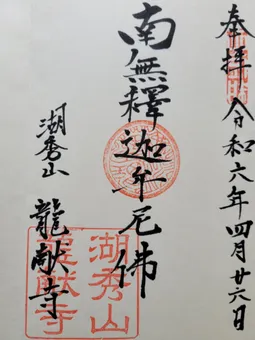 奉拝 令和六年四月廿六日
南無釋迦牟尼佛
湖秀山
龍献寺
湖秀山
龍献寺